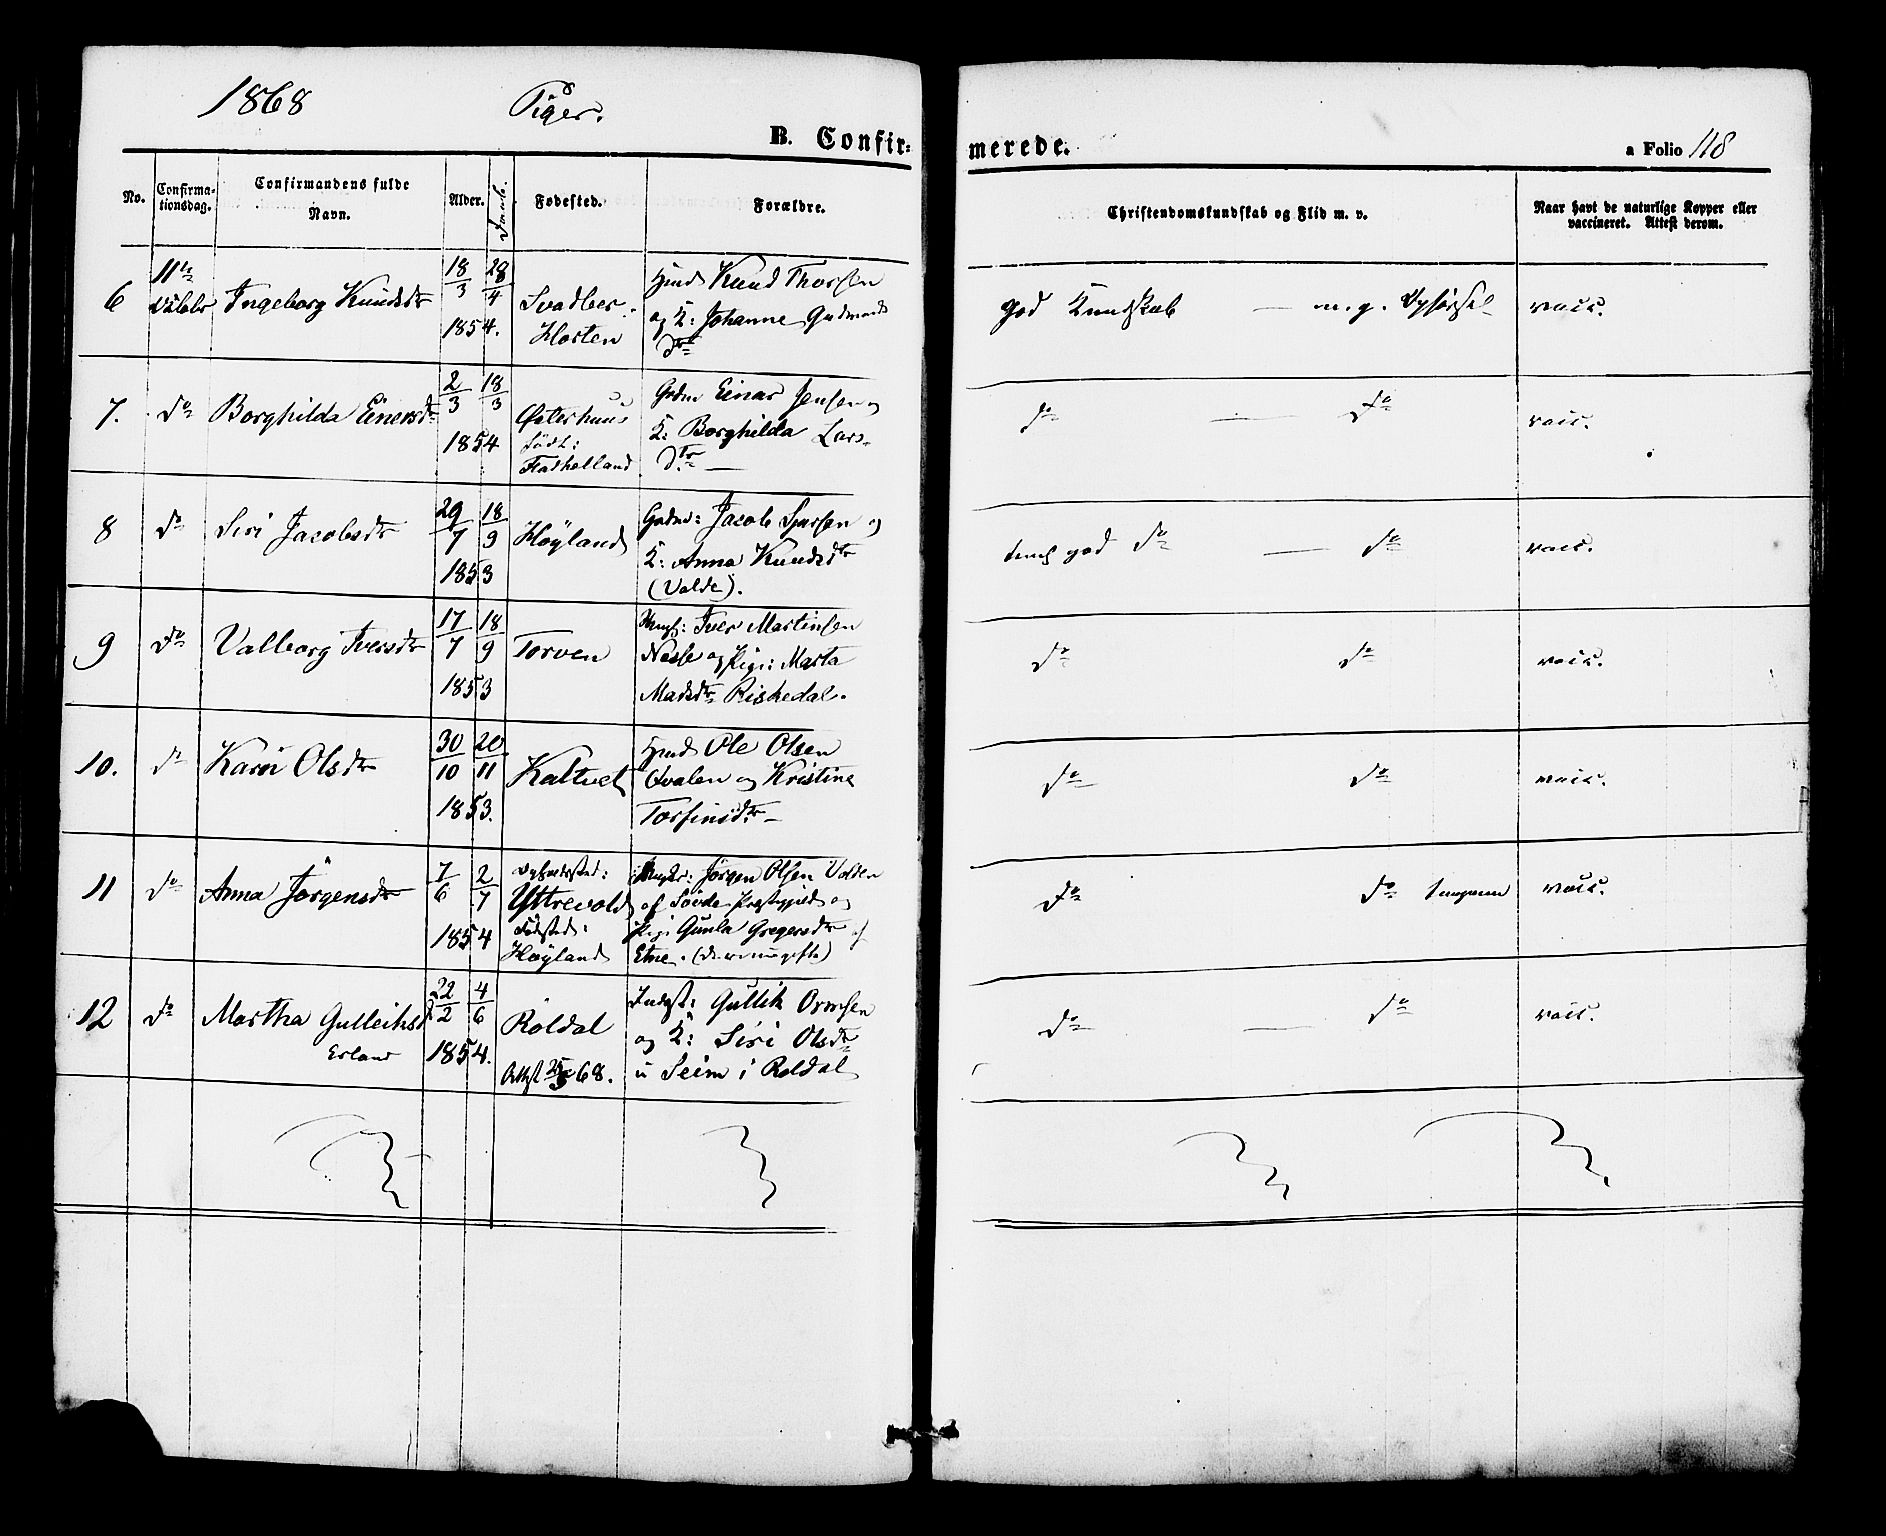 1868 Piger.
B. Confirmerede.
a Folio 118
No. Confirmationsdag. Confirmandens fulde Navn. Alder. Daab. Fødested. Forældre. Christendomskundskab og Flid m. v. Naar havt de naturlige Kopper eller vaccineret. Attest derom.
6 11te Ingeborg Knudsdtr 18/3 1854. 28/4 Svadber-
Horten
Hmd Knud Thorsen
og K: Johanne Gudmunds
Dtr
god Kundskab — m. g. Opførsel vacc.
7. do Borghilda Einersdtr 2/3 18/3 1854 Østerhuus
Født:
Flathelland
Gdmd Einar Jensen og
K: Borghilda Lars-
Dtr —
do — do vacc.
8 do Siri Jacobsdtr 29/7 18/9 1853 Høyland
Gdmd: Jacob Sjursen og
K: Anna Knudsdtr
(Valde).
temg god do — do vacc.
9 do Valborg Iversdtr 17/7 18/9 1853 Torven
Ungk: Iver Martinsen
Nesse og Pige: Marta
Madsdtr Riskedal.
do do vacc.
10. do Kari Olsdtr 30/10 20/11 1853. Kaltvet
Hmd Ole Olsen
Kvalen og Kristine
Torfinsdtr —
do do vacc.
11 do Anna Jørgensdtr 7/6 2/7 1854 Opholdssted:
Yttrevold
Fødsted:
Høyland
Ungkr: Jørgen Olsen Valden
af Søvde Præstegjeld og
Pige Gunla Gregersdtr af
Etne. (De var ugifte)
do do vacc.
12 do Martha Gulleiksd
Erland
22/2 4/6 1854. Röldal
Attest 25/5 68.
Indst: Gullik Ormsen
og K: Siri Olsdtr
u Seim i Roldal
do — do vacc.